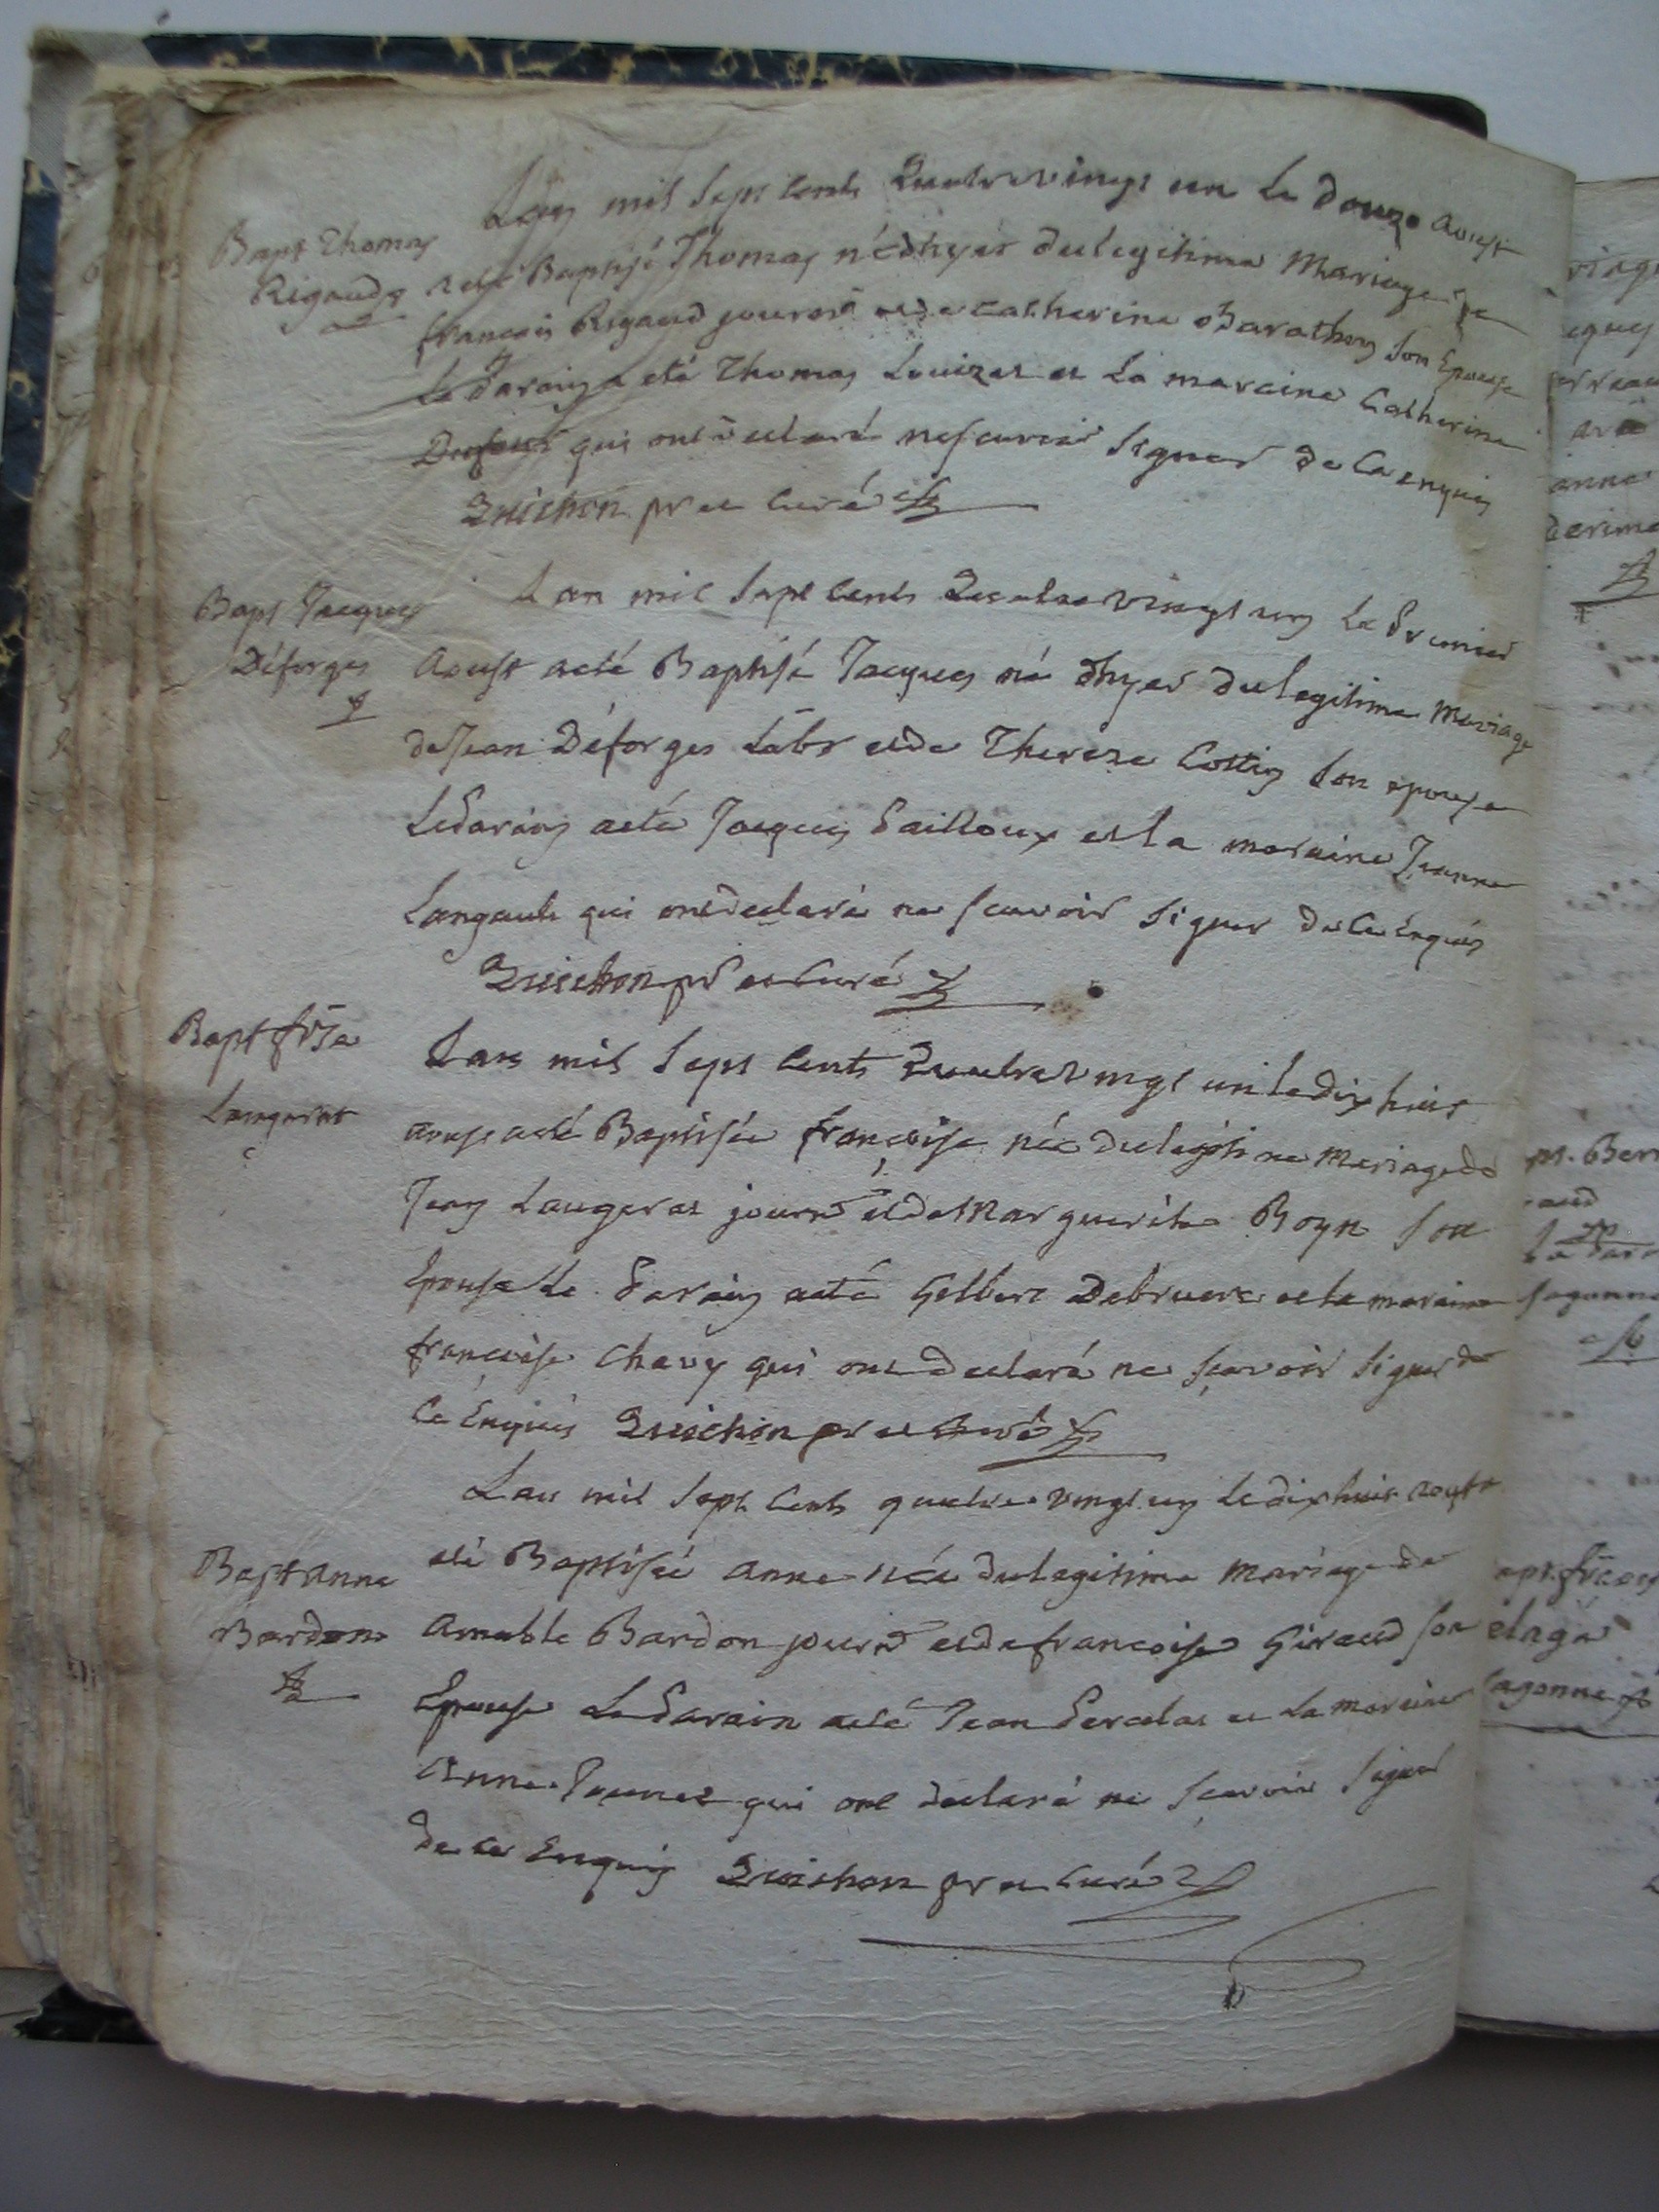 Bapt Thomas
Rigaud
Lan mil sept cents Quatre vingt un Le douze aoust
a eté Baptisé Thomas né d'hyer du legitime Mariage de
françois Rigaud journr et de catherine Barathon son Epouse
Le Parain a eté Thomas Louizat et La maraine Catherine
Dufour qui ont declaré ne scavoir signer de Ce enquis
Quichon pr et curé
Bapt Jacques
Déforges
Lan mil sept cents Quatre vingt un Le Premier
Aoust a eté Baptisé Jacques né d'hyer du legitime Mariage
de Jean Déforges Labr et de Thereze Cottin son epouse
Le Parain a eté Jacques Pailloux et la maraine Jeanne
Langault qui ont declaré ne scavoir signer de Ce Enquis
Quichon pr et Curé
Bapt frse
Laugerat
Lan mil sept cents Quatre vingt un le dix huit
aoust a eté Baptisée françoise née du legitime Mariage de
Jean Laugerat journr et de Marguerite Boyn son
Epouse Le Parain a eté Gilbert Debruere et la maraine
françoise Chavy qui ont declaré ne scavoir signer de
Ce Enquis Quichon pr et Curé
Bapt anne
Bardon
Lan mil sept Cents quatre vingt un le dix huit aoust
eté Baptisée anne née du legitime mariage de
amable Bardon journr et de françoise Giraud son
Epouse Le Parain a eté Jean et La maraine
Anne qui ont declaré ne scavoir signer
de ce Enquis Quichon pr et Curé